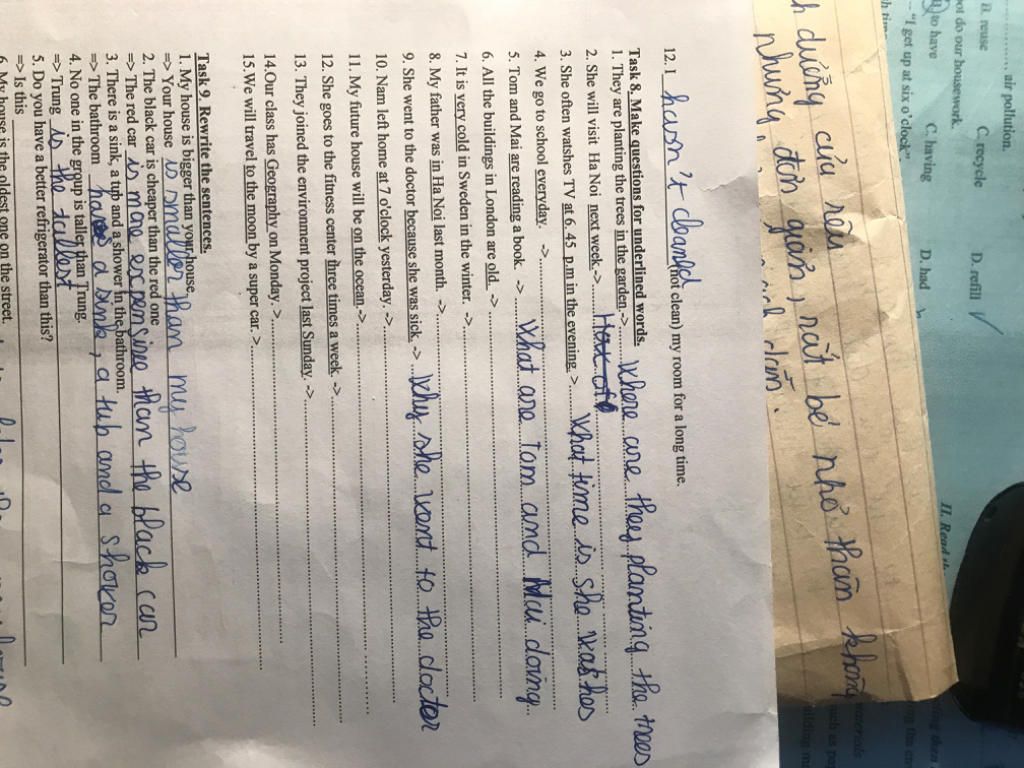 B. reuse C. recycle D. refill
air pollution.
ot do our housework.
to have C. having D. had
"I get up at six o'clock"
II. Read
dưỡng cứu rỗi
nhưng đơn giản, rất bé nhỏ thầm
12. I hasn't cleand (not clean) my room for a long time.
Task 8. Make questions for underlined words.
1. They are planting the trees in the garden -> Where are they planting the trees
2. She will visit Ha Noi next week ->
3. She often watshes TV at 6. 45 p.m in the evening. > What time is she washes
4. We go to school everyday. ->
5. Tom and Mai are reading a book. -> What are Tom and Mai doing
6. All the buildings in London are old. ->
7. It is very cold in Sweden in the winter. ->
8. My father was in Ha Noi last month. ->
9. She went to the doctor because she was sick. -> Why she went to the docter
10. Nam left home at 7 o'clock yesterday. ->
11. My future house will be on the ocean.->
12. She goes to the fitness center three times a week. ->
13. They joined the environment project last Sunday. ->
14.Our class has Geography on Monday. >
15.We will travel to the moon by a super car. >
Task 9. Rewrite the sentences.
1. My house is bigger than your house.
=> Your house is smaller than my house
2. The black car is cheaper than the red one
=> The red car is more expensive than the black car
3. There is a sink, a tub and a shower in the bathroom.
=> The bathroom has a sink, a tub and a shower
4. No one in the group is taller than Trung.
=> Trung is the tallest
5. Do you have a better refrigerator than this?
=> Is this
6. My house is the oldest one on the street.